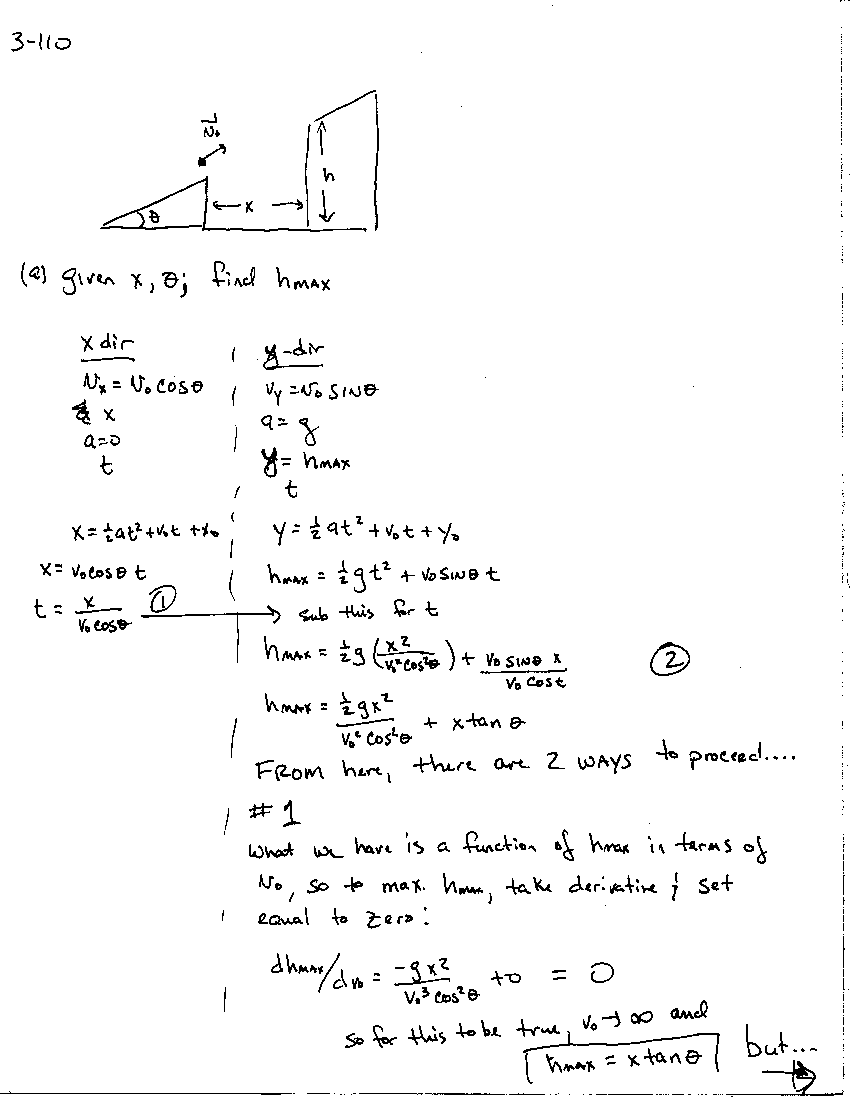 3-110
V₀
h
x
θ
(a) given x, θ; find hMAX
x dir
Vx = V₀ cosθ
x
a=0
t
x = ½at² + V₀t + x₀
x = V₀cosθ t
t = x/(V₀cosθ) ①
y-dir
Vy = V₀ SINθ
a = g
y = hMAX
t
y = ½at² + V₀t + y₀
hMAX = ½gt² + V₀SINθ t
sub this for t
hMAX = ½g(x²/(V₀²cos²θ)) + (V₀ SINθ x)/(V₀ cost) ②
hMAX = ½gx²/(V₀² cos²θ) + x tan θ
FROM here, there are 2 WAYS to proceed....
#1
What we have is a function of hmax in terms of
V₀, so to max. hmax, take derivative & set
equal to zero:
dhMAX/dV₀ = -gx²/(V₀³ cos²θ) + 0 = 0
so for this to be true, V₀ → ∞ and
hmax = x tanθ
but...